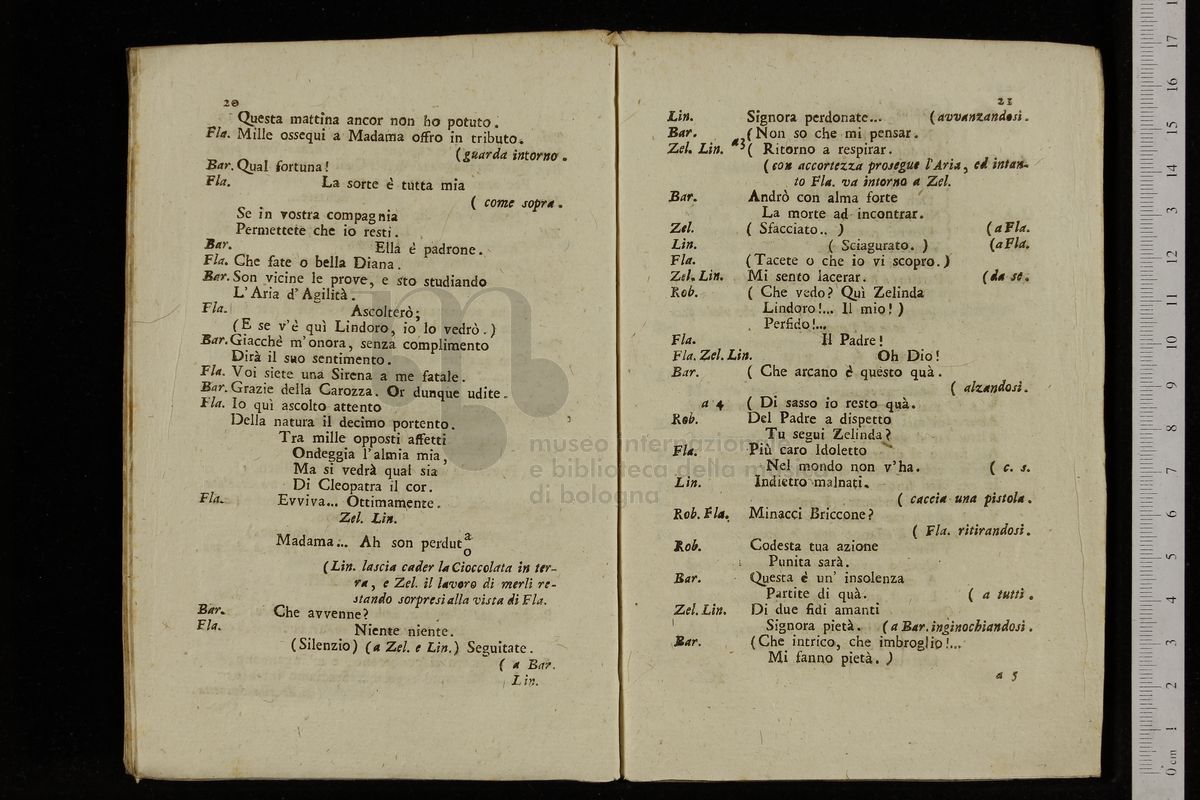 20
Questa mattina ancor non ho potuto.
Fla. Mille ossequi a Madama offro in tributo.
(guarda intorno.
Bar. Qual fortuna!
Fla. La sorte è tutta mia
( come sopra.
Se in vostra compagnia
Permettete che io resti.
Bar. Ella è padrone.
Fla. Che fate o bella Diana.
Bar. Son vicine le prove, e sto studiando
L'Aria d'Agilità.
Fla. Ascolterò;
(E se v'è quì Lindoro, io lo vedrò.)
Bar. Giacchè m'onora, senza complimento
Dirà il suo sentimento.
Fla. Voi siete una Sirena a me fatale.
Bar. Grazie della Carozza. Or dunque udite.
Fla. Io quì ascolto attento
Della natura il decimo portento.
Tra mille opposti affetti
Ondeggia l'almia mia,
Ma si vedrà qual sia
Di Cleopatra il cor.
Fla. Evviva... Ottimamente.
Zel. Lin.
Madama... Ah son perdut a o
(Lin. lascia cader la Cioccolata in ter-
ra, e Zel. il lavoro di merli re-
stando sorpresi alla vista di Fla.
Bar. Che avvenne?
Fla. Niente niente.
(Silenzio) (a Zel. e Lin.) Seguitate.
( a Bar.
Lin.
21
Lin. Signora perdonate... (avvanzandosi.
Bar. (Non so che mi pensar.
Zel. Lin. a3 ( Ritorno a respirar.
(con accortezza prosegue l'Aria, ed intan-
to Fla. va intorno a Zel.
Bar. Andrò con alma forte
La morte ad incontrar.
Zel. ( Sfacciato.. ) (a Fla.
Lin. ( Sciagurato. ) (a Fla.
Fla. (Tacete o che io vi scopro.)
Zel. Lin. Mi sento lacerar. (da se.
Rob. ( Che vedo? Quì Zelinda
Lindoro!... Il mio! )
Perfido!...
Fla. Il Padre!
Fla. Zel. Lin. Oh Dio!
Bar. ( Che arcano è questo quà.
( alzandosi.
a 4 ( Di sasso io resto quà.
Rob. Del Padre a dispetto
Tu segui Zelinda?
Fla. Più caro Idoletto
Nel mondo non v'ha. ( c. s.
Lin. Indietro malnati.
( caccia una pistola.
Rob. Fla. Minacci Briccone?
( Fla. ritirandosi.
Rob. Codesta tua azione
Punita sarà.
Bar. Questa è un' insolenza
Partite di quà. ( a tutti.
Zel. Lin. Di due fidi amanti
Signora pietà. (a Bar. inginochiandosi.
Bar. (Che intrico, che imbroglio!...
Mi fanno pietà.)
a 5
museo internazionale
e biblioteca della musica
di bologna
0 cm 1 2 3 4 5 6 7 8 9 10 11 12 13 14 15 16 17